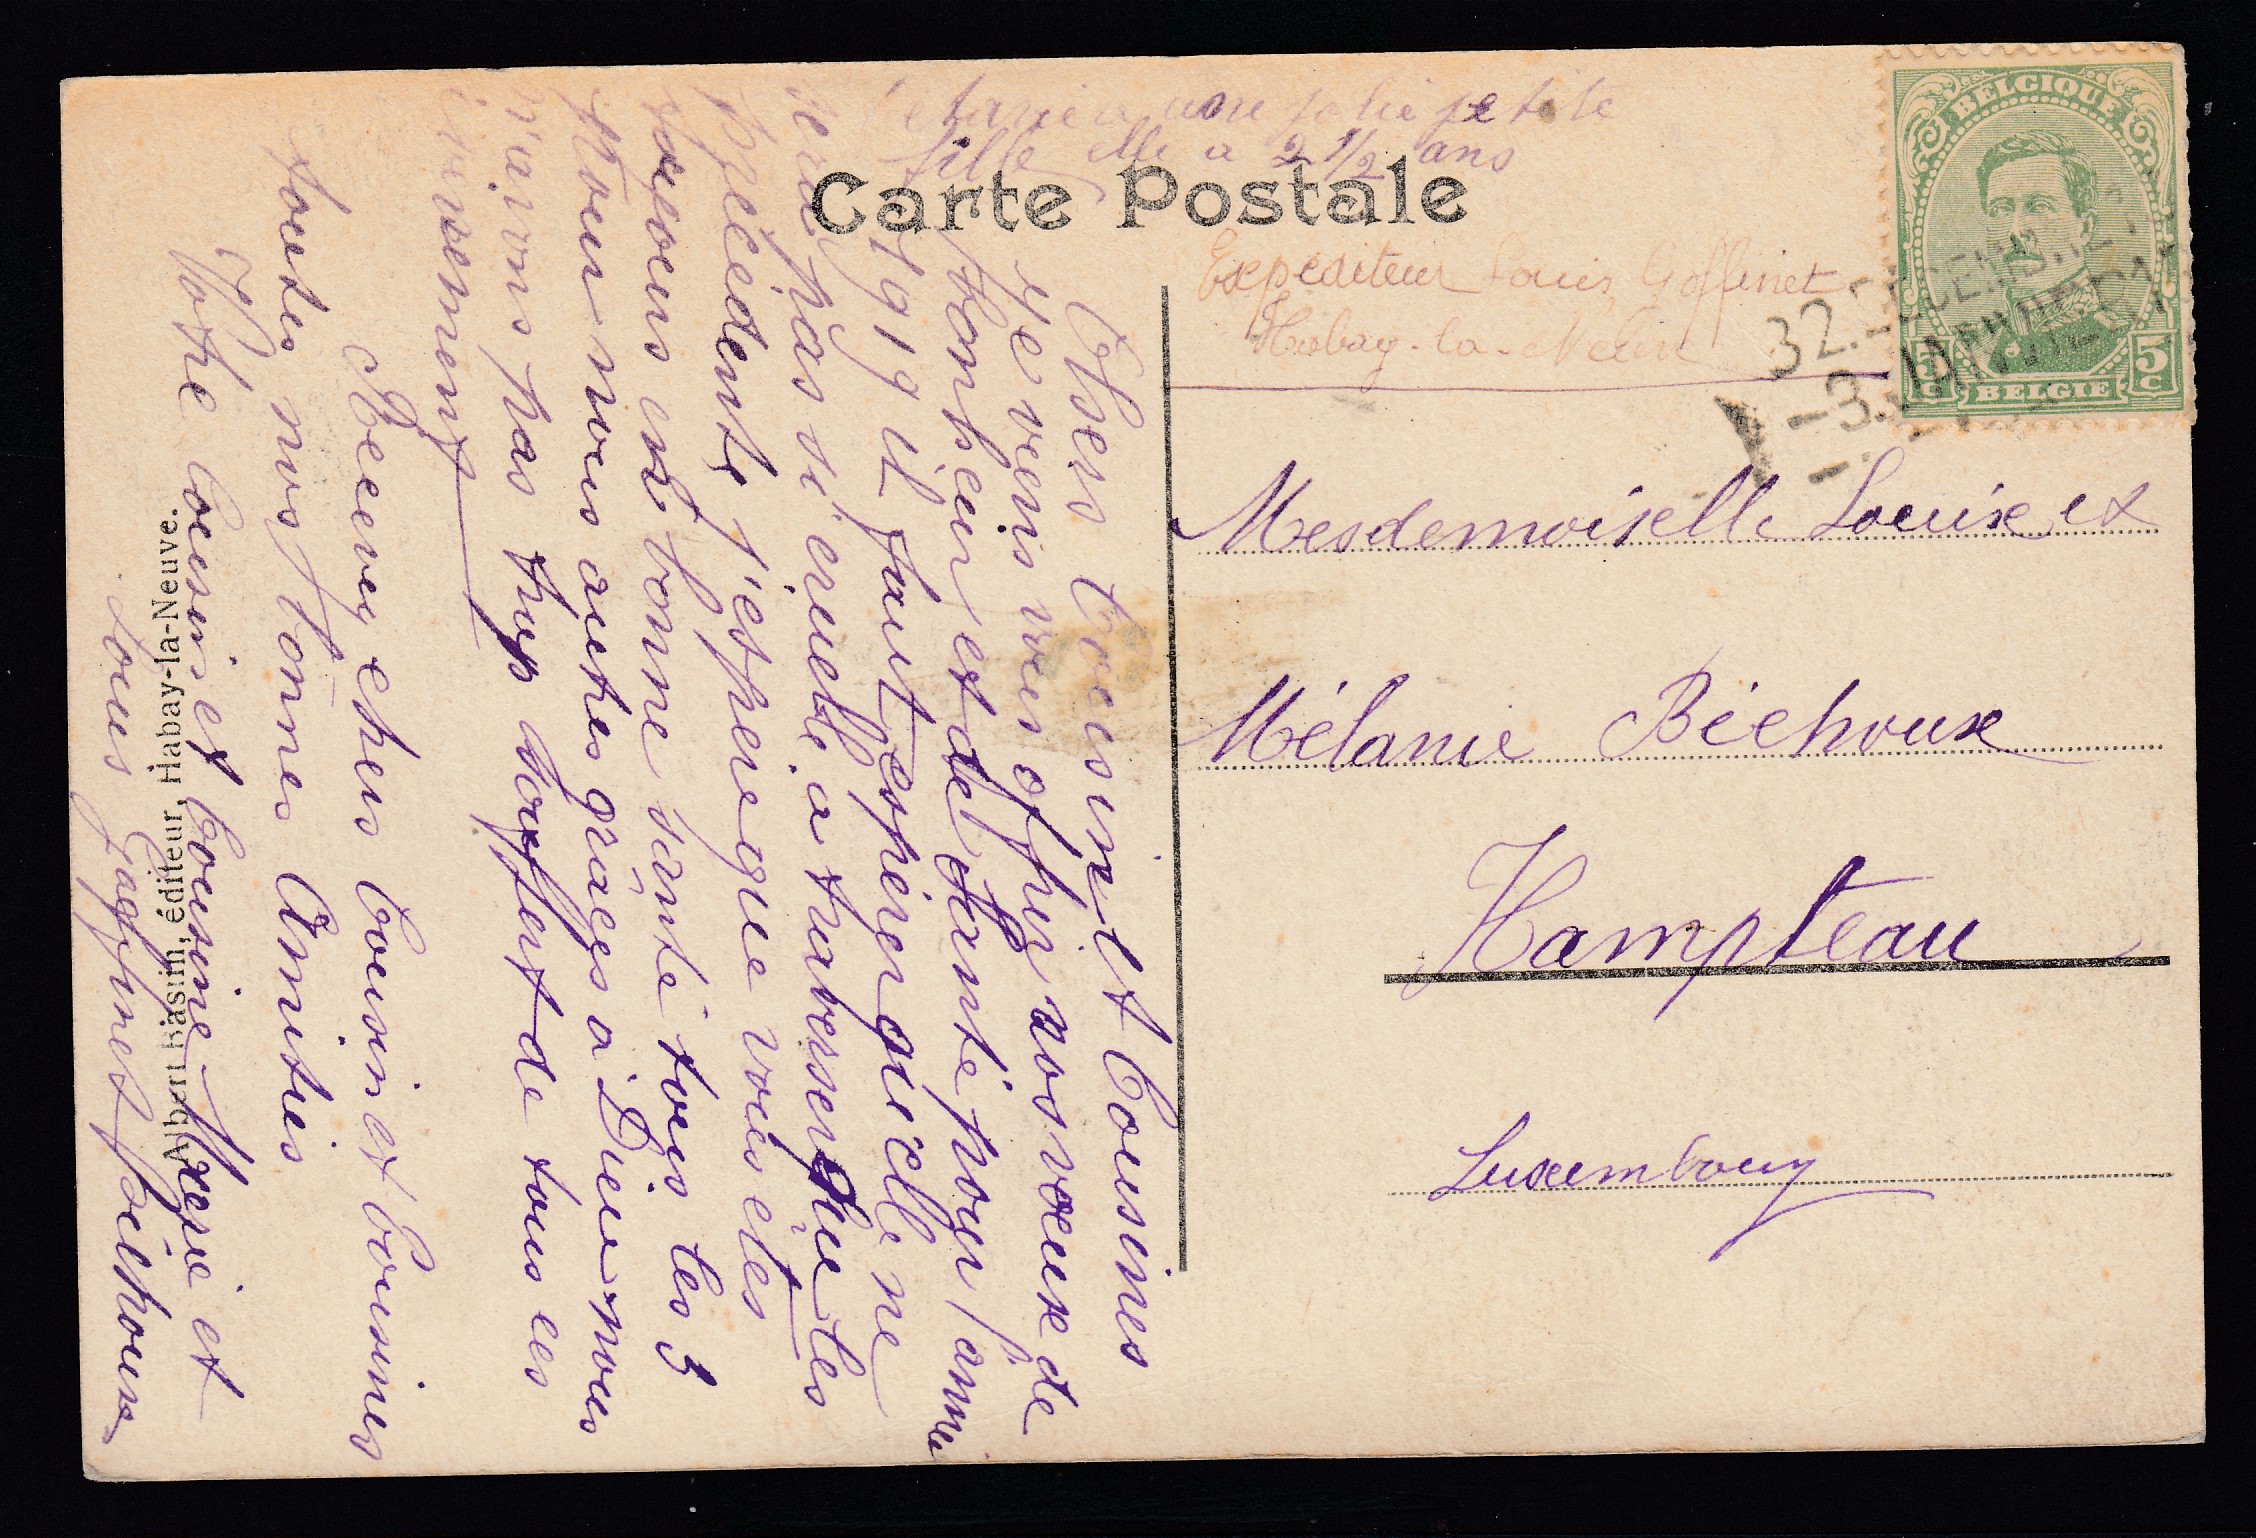 Octavie a une jolie petite
fille elle a 2 1/2 ans
Carte Postale
Expéditeur Louis Goffinet
Habay-la-Neuve
BELGIQUE
5 C
5 C
BELGIE
-3. JAN
Mesdemoiselle Louise et
Mélanie Béchoux
Hampteau
Luxembourg
Chers Cousin et Cousines
Je viens vous offrir nos voeux de
bonheur et de santé pour l'année
1919 il faut espérer qu'elle ne
sera pas si cruelle a traverser que les
précédente j'espere que vous etes
toujours en bonne santé tous les 3
Pour nous autres graces a Dieu nous
n'avons pas trop souffert de tous ces
évenement
Recevez chers Cousin et Cousines
toutes nos bonnes Amitiés
Votre Cousin et Cousine Marie et
Louis Goffinet Béchoux
Albert Bassin, éditeur, Habay-la-Neuve.